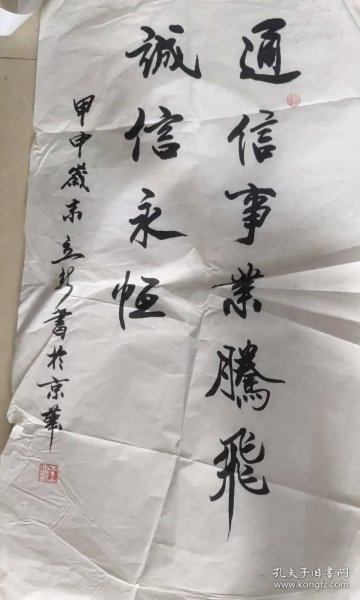 通信事業騰飛
誠信永恒
甲申歲末立新書於京華
孔夫子旧书网
www.kongfz.com